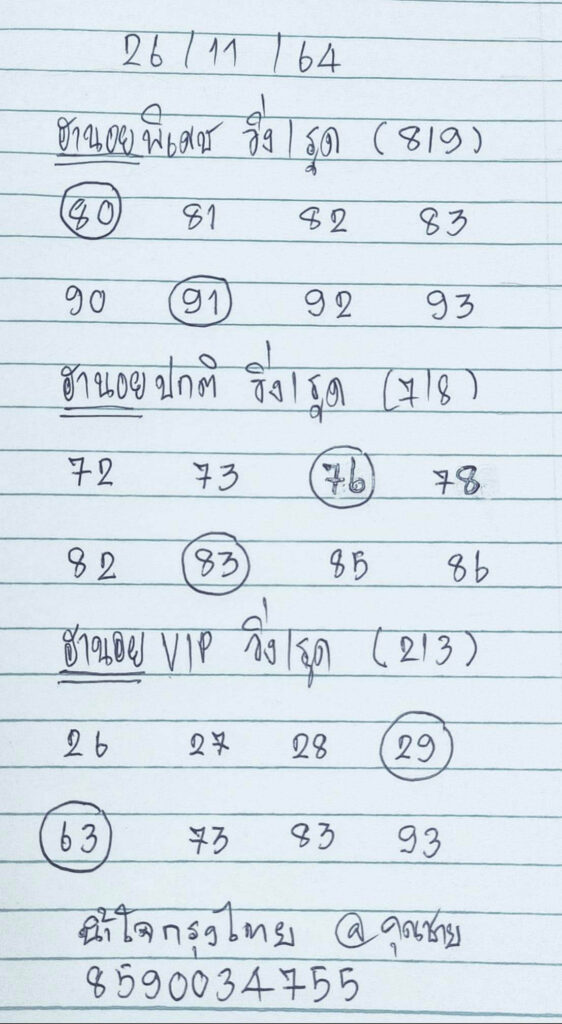 26/11/64
ฮานอยพิเศษ วิ่ง/รูด (8/9)
80 81 82 83
90 91 92 93
ฮานอยปกติ วิ่ง/รูด (7/8)
72 73 76 78
82 83 85 86
ฮานอย VIP วิ่ง/รูด (2/3)
26 27 28 29
63 73 83 93
น้ำใจกรุงไทย @คุณชาย
8590034755